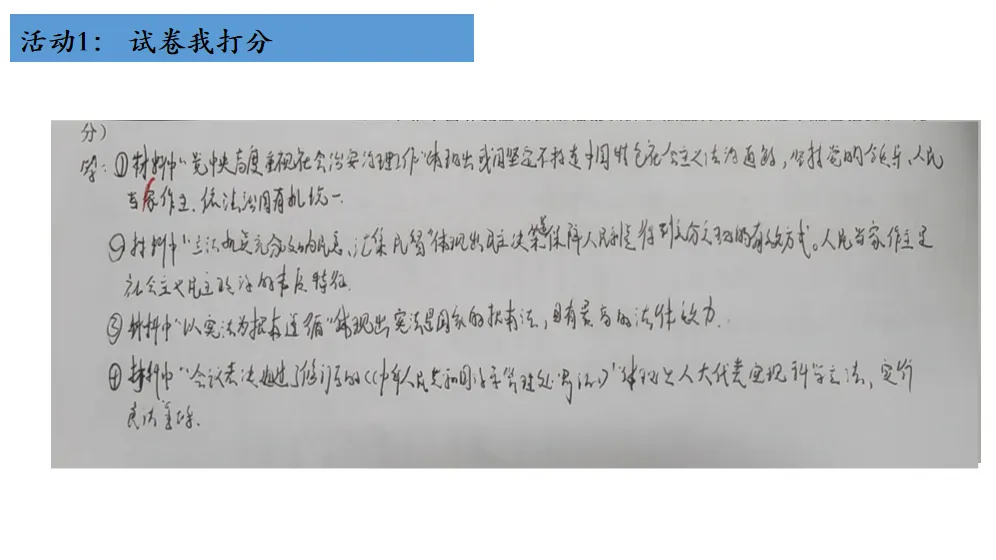 活动1： 试卷我打分
分）
答：①材料中“党中央高度重视社会治安治理工作”体现出我国坚定不移走中国特色社会主义法治道路，坚持党的领导、人民
当家作主、依法治国有机统一.
②材料中“立法机关充分吸纳民意、汇集民智”体现出民主决策是保障人民利益得到充分实现的有效方式。人民当家作主是
社会主义民主政治的本质特征.
③材料中“以宪法为根本遵循”体现出宪法是国家的根本法，具有最高的法律效力.
④材料中“会议表决通过了修订后的《中华人民共和国治安管理处罚法》”体现出人大代表实现科学立法，实行
良法善治.